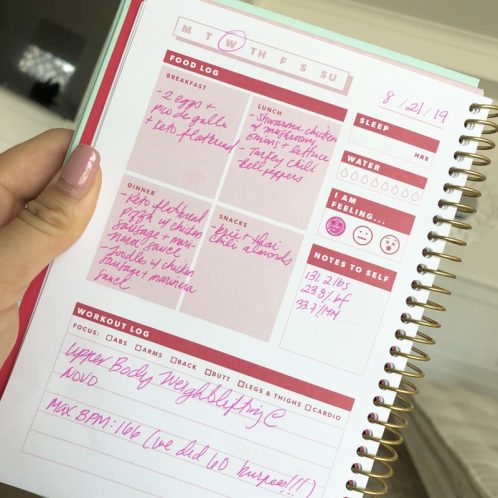 M T W TH F S SU
8/21/19
FOOD LOG
BREAKFAST
- 2 eggs +
pico de gallo
+ keto flatbread
LUNCH
- Shwarma chicken
w/ mushrooms,
onions + lettuce
- Turkey chili
bell peppers
DINNER
- Keto flatbread
pizza w/ chicken
sausage + mari-
nara sauce
- Zoodles w/ chicken
sausage + marinara
sauce
SNACKS
- brie + thai
chili almonds
SLEEP
HRS
WATER
I AM
FEELING...
NOTES TO SELF
131.2 lbs
23.8% bf
33.7% MM
WORKOUT LOG
FOCUS: ABS ARMS BACK BUTT LEGS & THIGHS CARDIO
Upper Body Weightlifting @
NOVO
Max BPM: 166 (we did 60 burpees!!!)